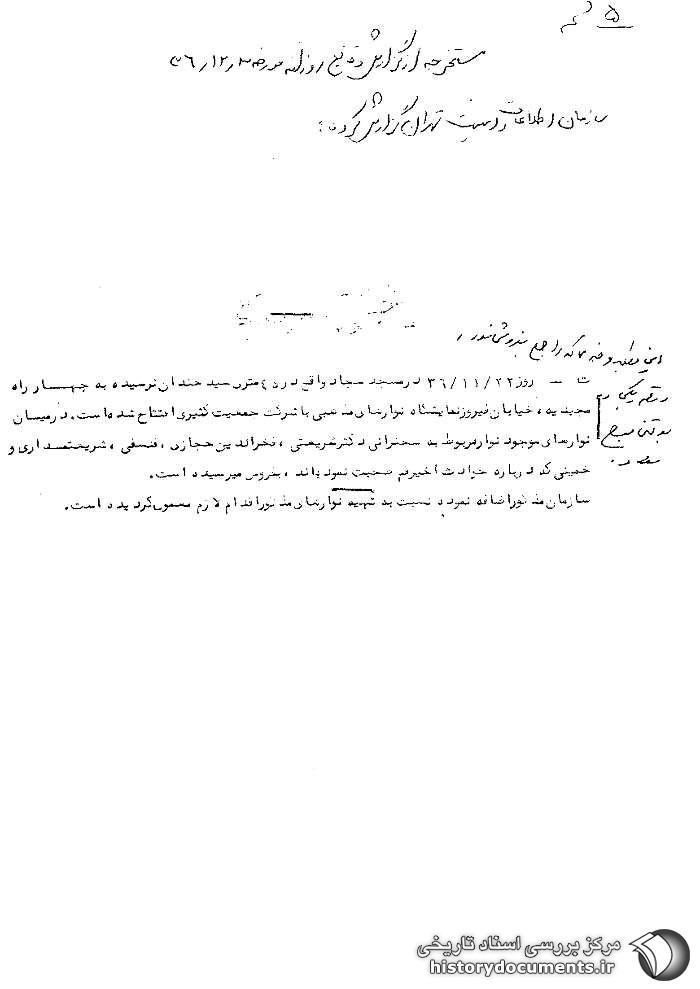 ۵
مستخرجه از گزارش وقایع روزانه مورخه ۳۶٫۱۲٫۳
سازمان اطلاعات و امنیت تهران گزارش کرده:
این
ت ــ روز ۳۶/۱۱/۲۲ در مسجد سجاد واقع در ۴۵ متری سید خندان نرسیده به چهار راه
مجیدیه، خیابان فیروز نمایشگاه نوارهای مذهبی با شرکت جمعیت کثیری افتتاح شده است. در میان
نوارهای موجود نوار مربوط به سخنرانی دکتر شریعتی، فخرالدین حجازی، فلسفی، شریعتمداری و
خمینی که درباره حوادث اخیر قم صحبت نموده‌اند، بفروش میرسیده است.
سازمان مذکور اضافه نموده نسبت به تهیه نوارهای مذکور اقدام لازم معمول گردیده است.
مرکز بررسی اسناد تاریخی
historydocuments.ir